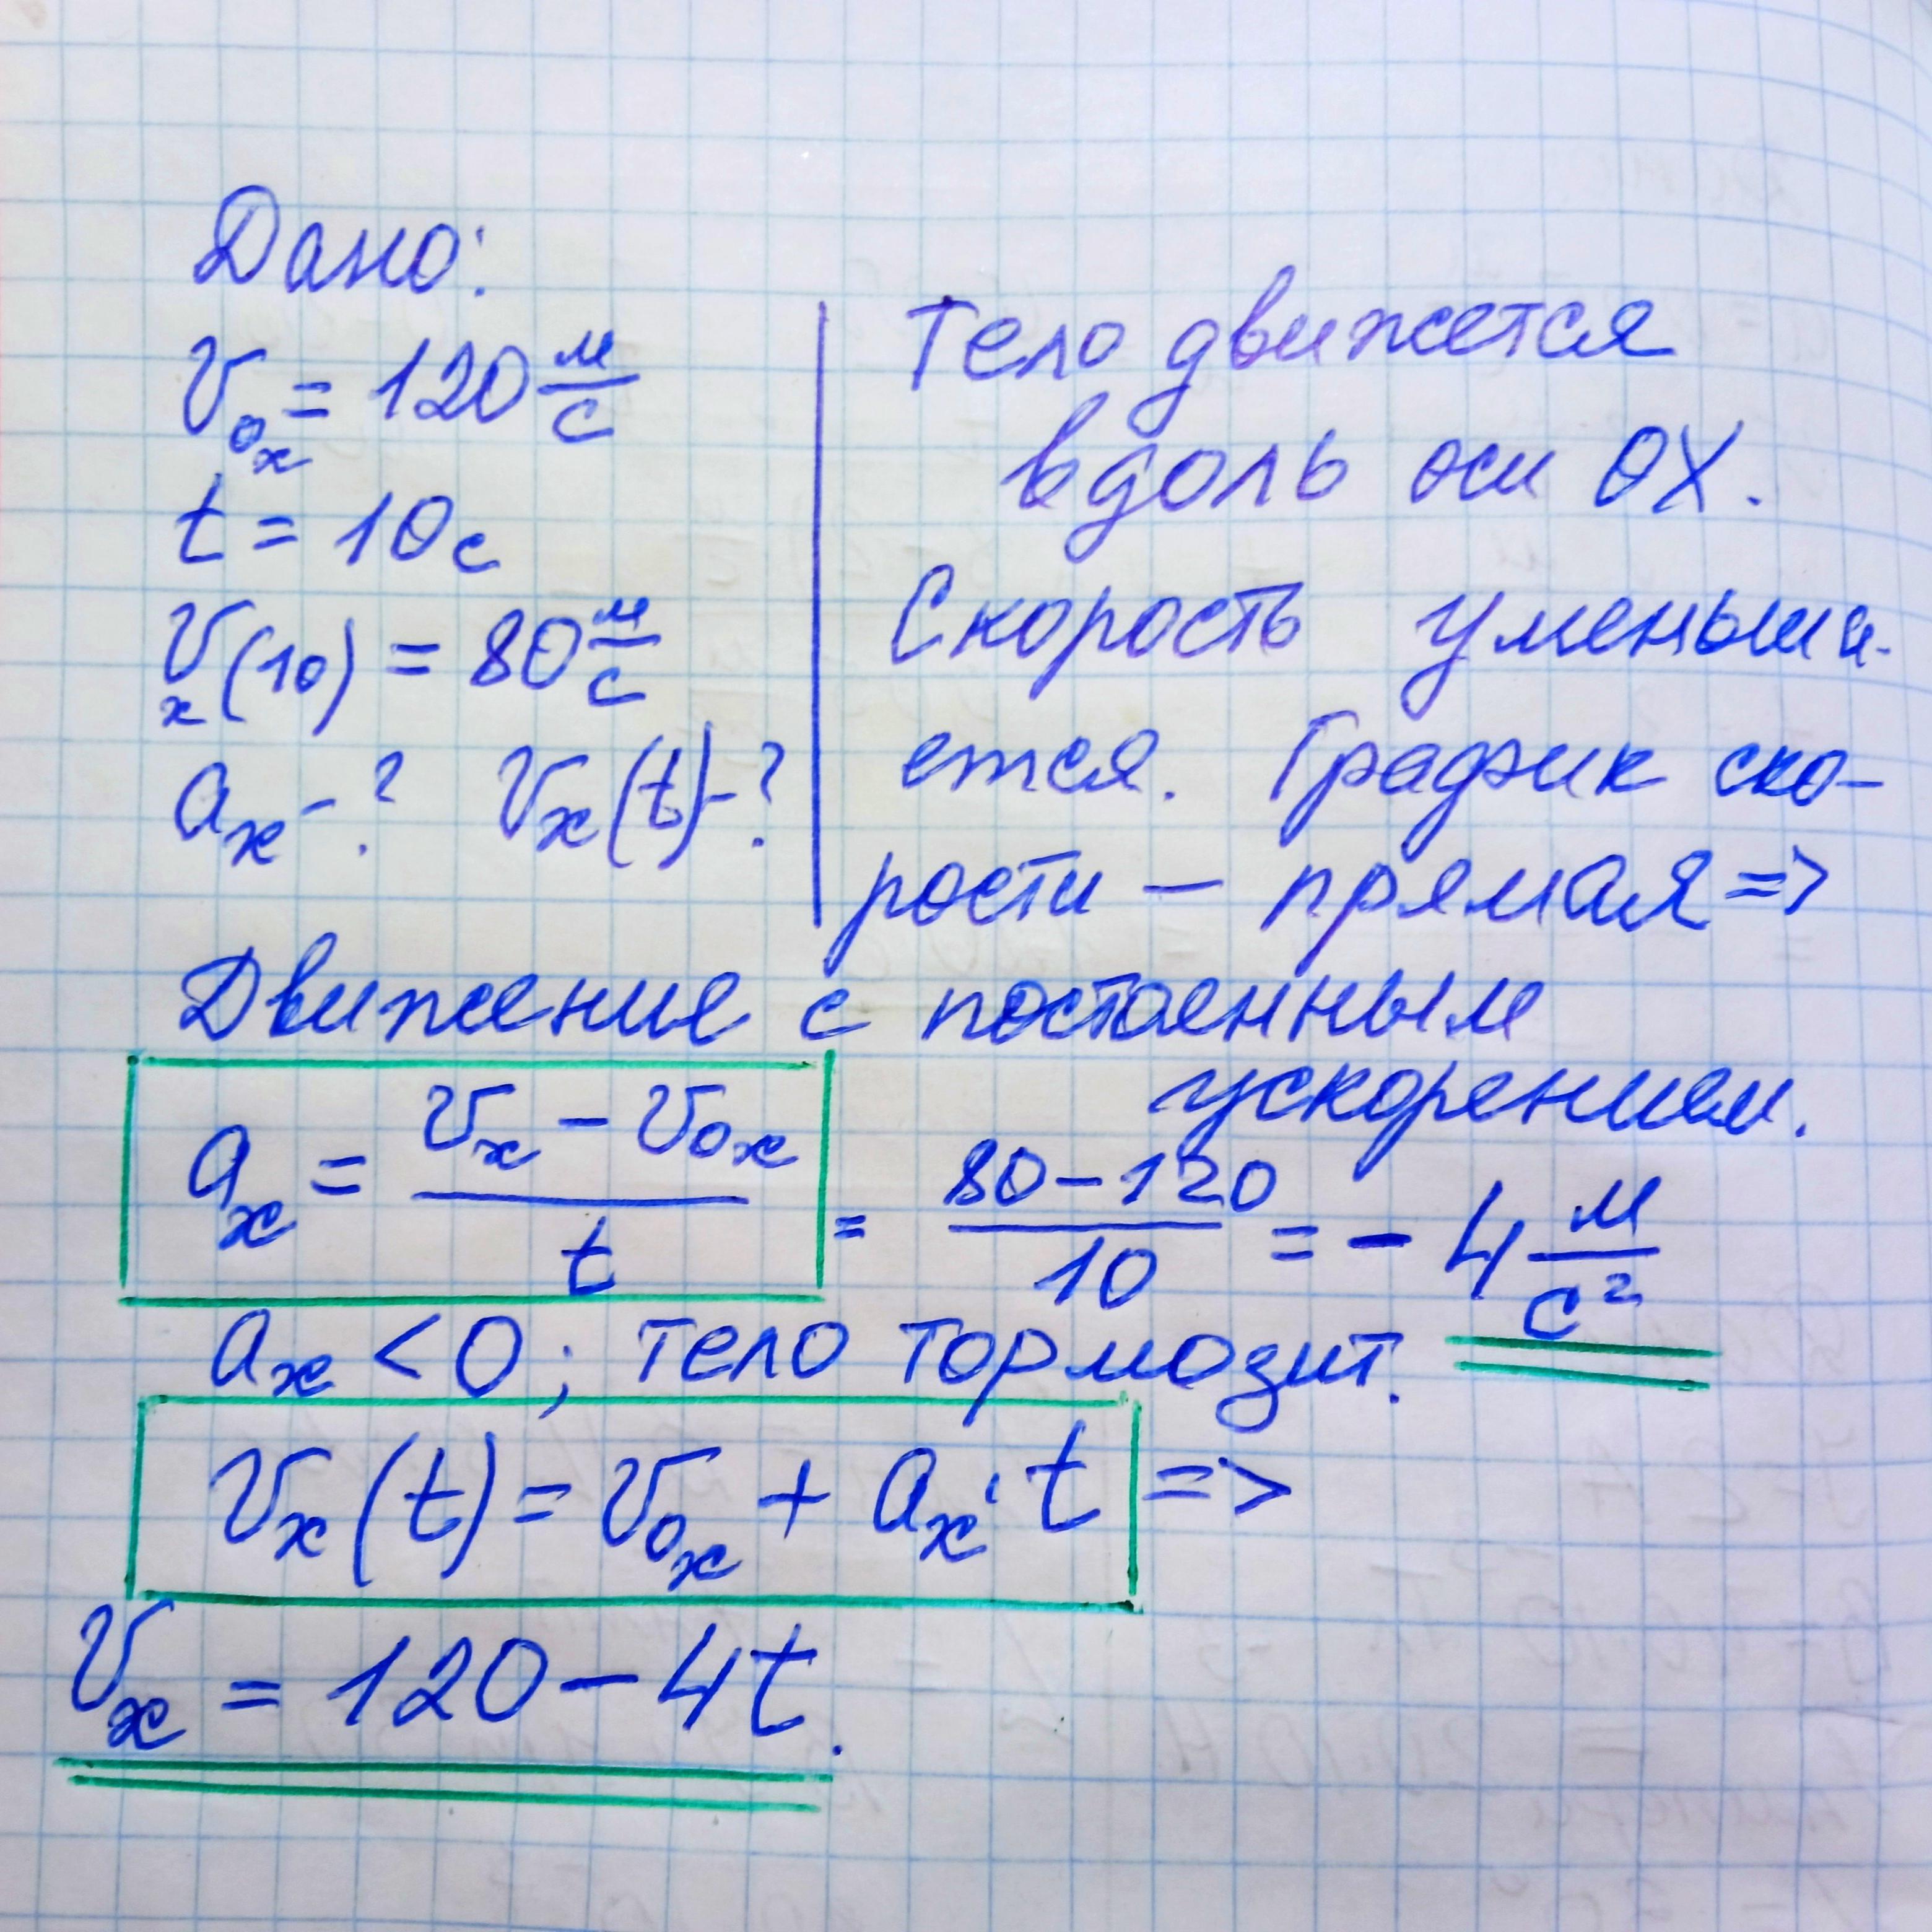 Дано:
V₀ₓ = 120 м/с
t = 10 с
Vₓ(10) = 80 м/с
aₓ - ? Vₓ(t) - ?
Тело движется
вдоль оси OX.
Скорость уменьша-
ется. График ско-
рости — прямая =>
Движение с постоянным
ускорением.
aₓ = (Vₓ - V₀ₓ)/t = (80 - 120)/10 = - 4 м/с²
aₓ < 0; тело тормозит.
Vₓ(t) = V₀ₓ + aₓ · t =>
Vₓ = 120 - 4t.